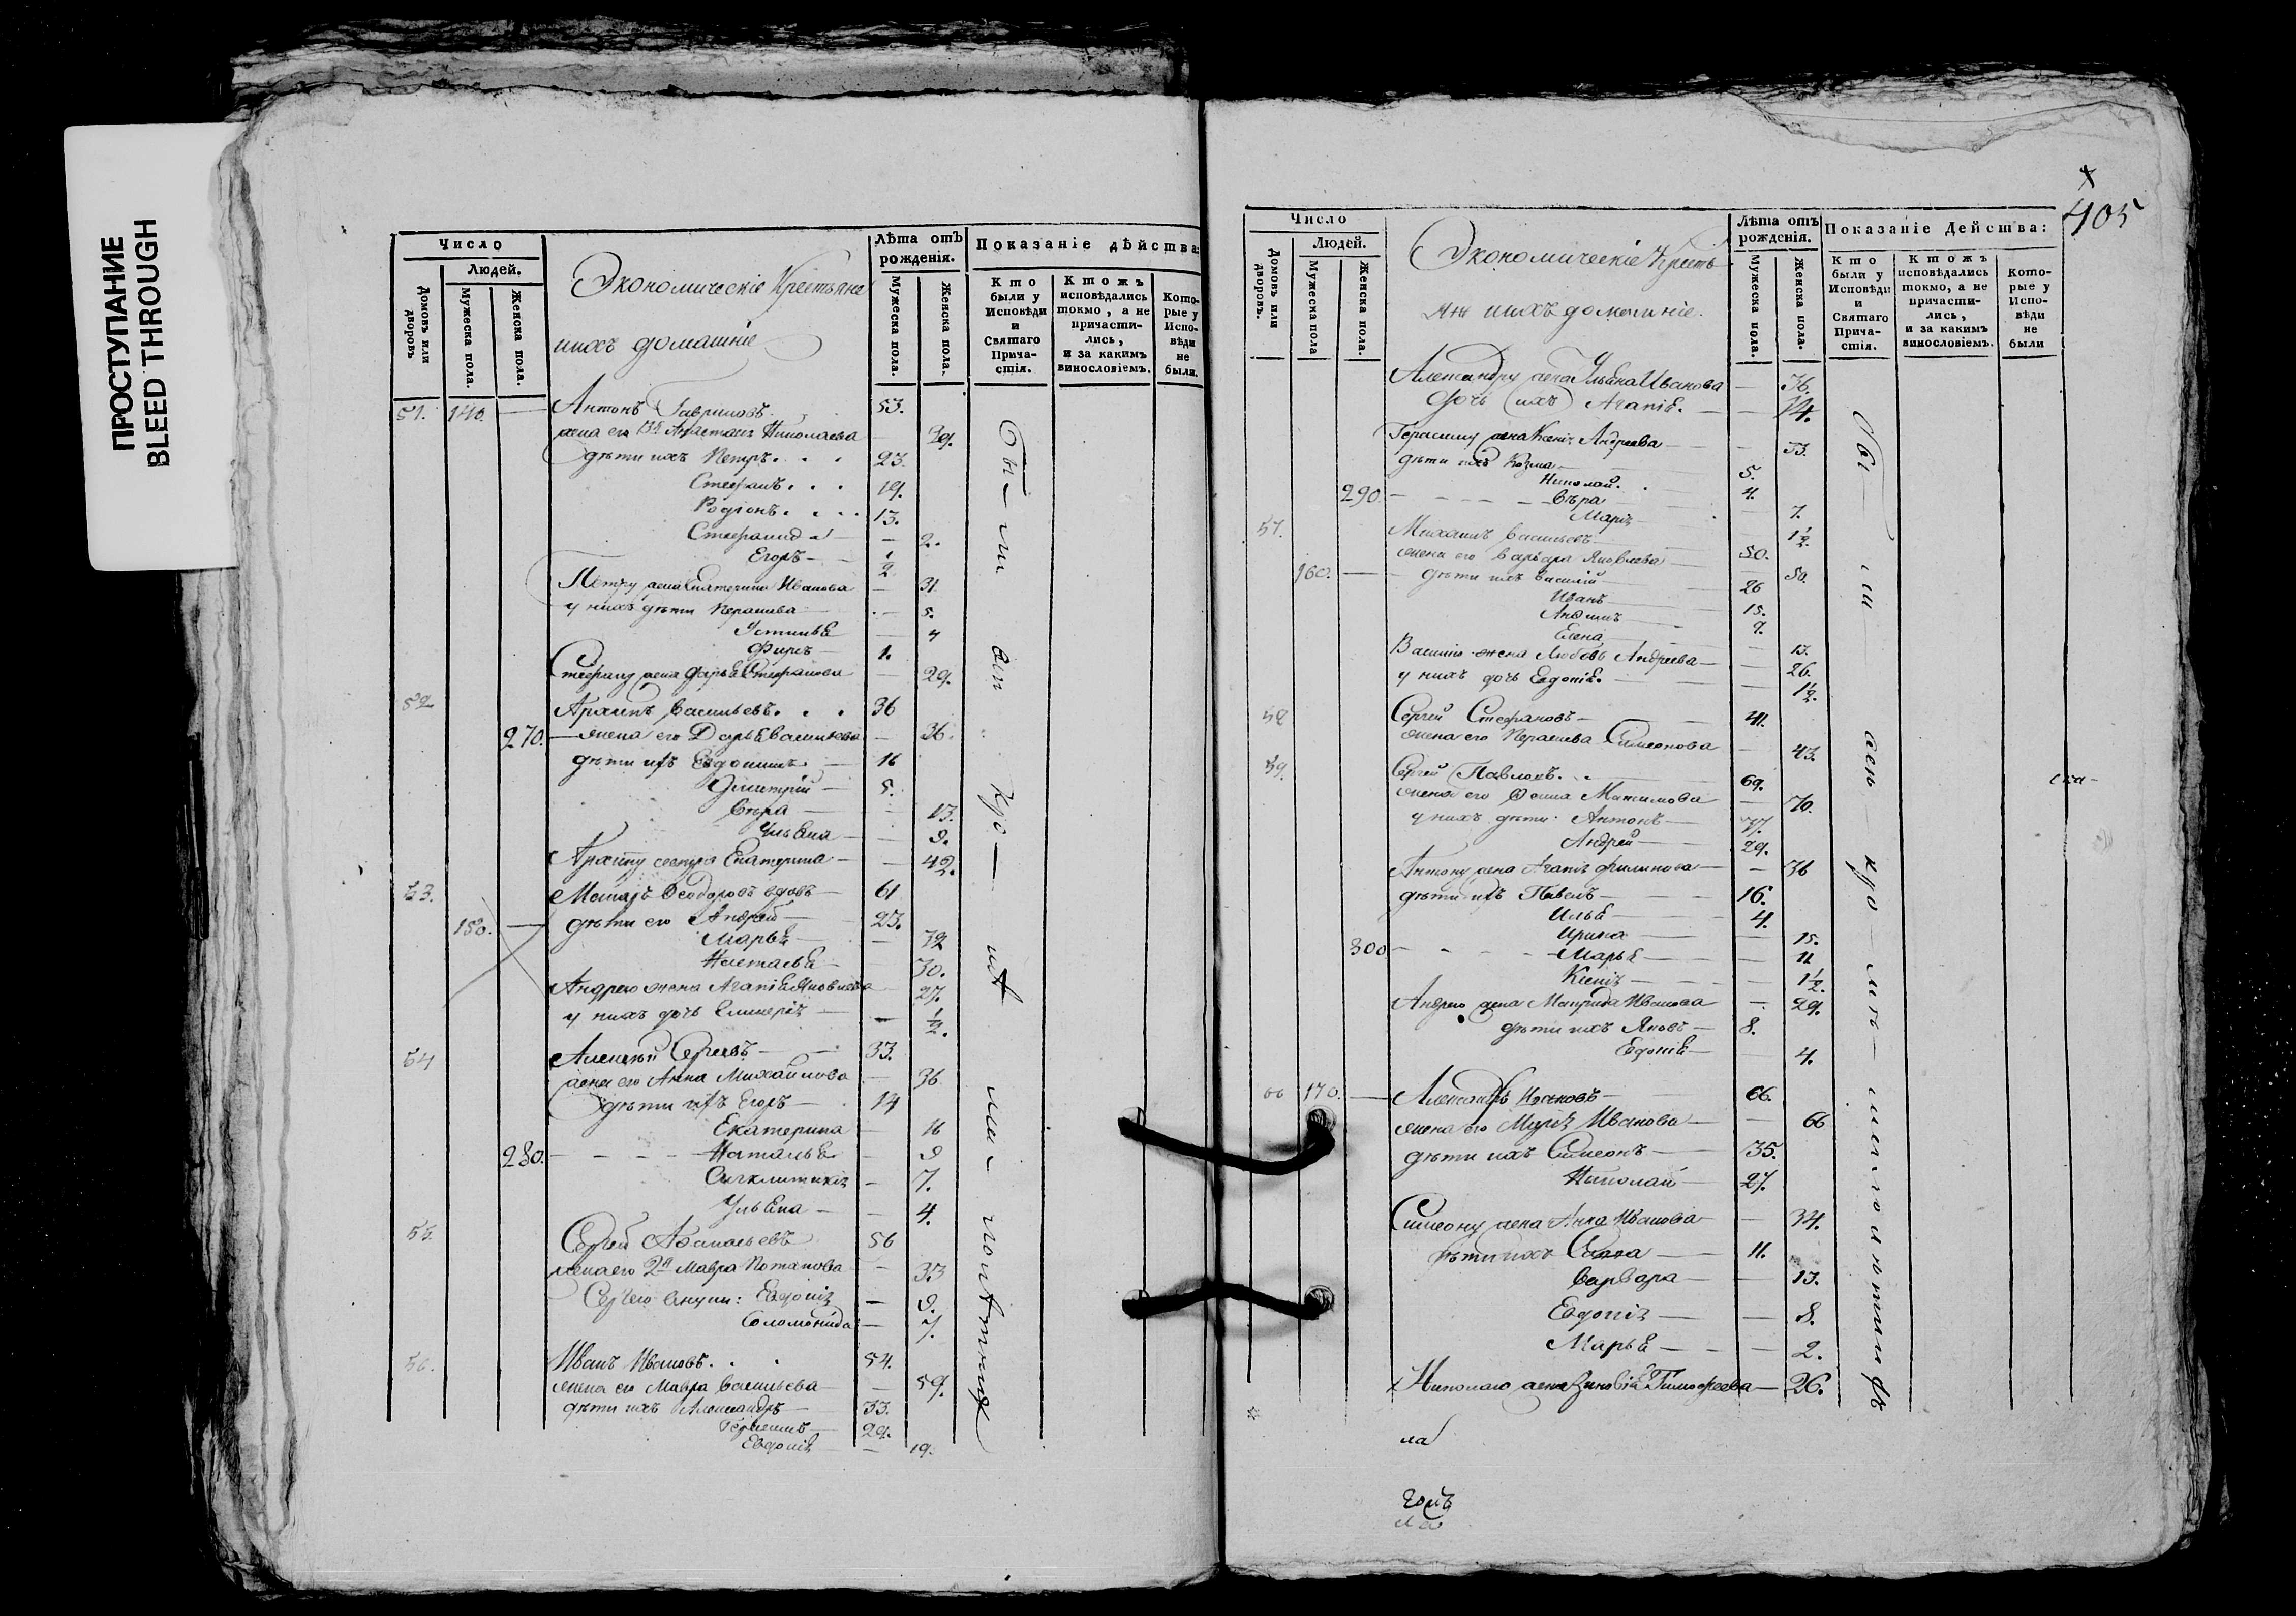 ПРОСТУПАНИЕ
BLEED THROUGH
Число
Людей.
Домовъ или дворовъ
Мужеска пола.
Женска пола.
Экономическіе Крестьяне
ихъ домашніе
Лѣта отъ рожденія.
Мужеска пола.
Женска пола.
Показаніе дѣйства:
Кто были у Исповѣди и Святаго Прича-стія.
Ктожъ исповѣдались токмо, а не причасти-лись, и за какимъ винословіемъ.
Кото-рые у Испо-вѣди не были.
51. 140. Антонъ Гавриловъ 53.
жена его Анастасія Николаева 39.
дѣти ихъ Петръ 23.
Стефанъ 19.
Родіонъ 13.
Стефанида 2.
Егоръ 1/2
Петру жена Екатерина Иванова 31
у нихъ дѣти Параскева 5.
Устинья 4
Фирсъ 1.
Стефану жена Дарья Стефанова 29.
52 Архипъ Васильевъ 36
270. жена его Дарья Васильева 36.
дѣти ихъ Евдокимъ 16
Дмитрій 5.
Вѣра 13.
Ульяна 9.
Архипу сестра Екатерина 42.
53. Ѳеодоровъ вдовъ 61
150. дѣти его Андрей 23.
Марья 32
Наталья 30.
Андрею жена Агапія Яковлева 27.
у нихъ дочь Гликерія 1/2.
54 Алексѣй Сергѣевъ 33.
жена его Анна Михайлова 36
дѣти ихъ Егоръ 14
Екатерина 16
280. Наталья 9
Сигклитикія 7.
Ульяна 4.
55. Сергей Аѳанасьевъ 56
жена его 2я Мавра Потапова 33
Внуки: Евдокія 9.
Соломонида 7.
56. Иванъ Ивановъ 54.
жена его Мавра Васильева 59.
дѣти ихъ Александръ 33.
Герасимъ 29.
Евдокія 19.
405
Число
Людей.
Домовъ или дворовъ.
Мужеска пола
Женска пола.
Экономическіе Кресть
яне ихъ домашніе.
Лѣта отъ рожденія.
Мужеска пола.
Женска пола.
Показаніе Действа:
Кто были у Исповѣди и Святаго Прича-стія.
Ктожъ исповѣдались токмо, а не причасти-лись, и за какимъ винословіемъ.
Кото-рые у Испо-вѣди не были
Александру жена Ульяна Иванова 36.
дочь ихъ Агапія 14.
Герасиму жена Ксенія Андреева 33.
дѣти ихъ Козма 5.
Николай 4.
290. Вѣра 7.
Марія 1 1/2.
57. Михаилъ Васильевъ 50.
жена его Варвара Яковлева 50.
160. дѣти ихъ Василій 26
Иванъ 15.
9.
Елена 13.
Василію жена Любовь Андреева 26.
у нихъ дочь Евдокія 1 1/2.
58 Сергей Стефановъ 41.
жена его Параскева Симеонова 43.
59. Сергей Павловъ 69.
жена его Матимова 70.
у нихъ дѣти Антонъ 37.
Андрей 29.
Антону жена Агапія Филипова 36
дѣти ихъ Павелъ 16.
Илья 4.
Ирина 15.
300 Марья 11
Ксенія 1 1/2.
Андрею жена Матрида Иванова 29.
дѣти ихъ Яковъ 8.
Евдокія 4.
60 170. Александръ 66.
жена его Марія Иванова 66
дѣти ихъ Симеонъ 35.
Николай 27.
Симеону жена Анна Иванова 34.
дѣти ихъ 11.
Варвара 13.
Евдокія 8.
Марья 2.
Николаю жена Зиновія Тимофеева 26.
ла